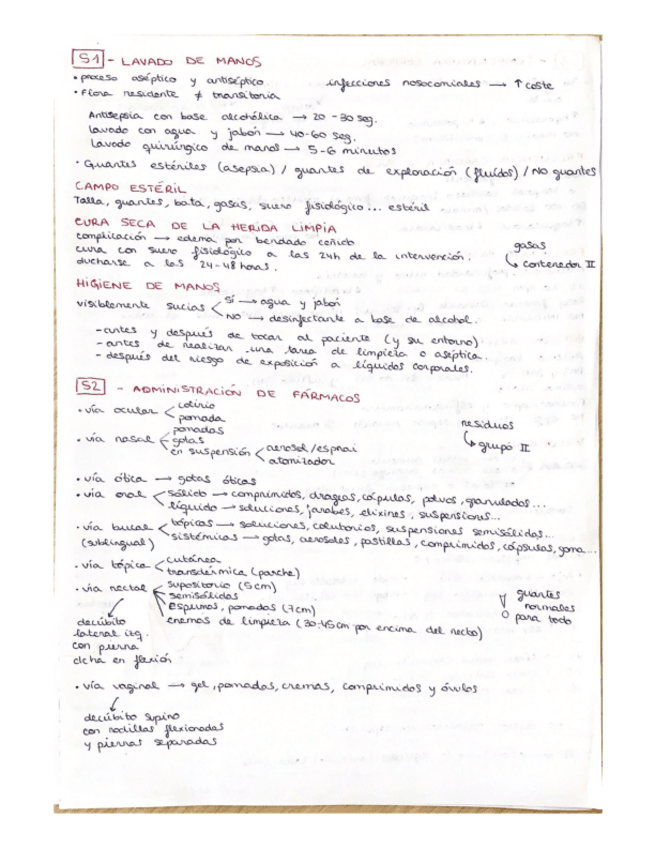 S1 - LAVADO DE MANOS
• proceso aséptico y antiséptico infecciones nosocomiales → ↑ coste
• Flora residente ≠ transitoria
Antisepsia con base alcohólica → 20-30 seg.
lavado con agua y jabón → 40-60 seg.
Lavado quirúrgico de manos → 5-6 minutos
• Guantes estériles (asepsia) / guantes de exploración (fluidos) / NO guantes
CAMPO ESTÉRIL
Talla, guantes, bata, gasas, suero fisiológico... estéril
CURA SECA DE LA HERIDA LIMPIA
complicación → edema por vendado ceñido
cura con suero fisiológico a las 24h de la intervención.
ducharse a las 24-48 horas.
gasas
↳ contenedor II
HIGIENE DE MANOS
visiblemente sucias < sí → agua y jabón
NO → desinfectante a base de alcohol.
- antes y después de tocar al paciente (y su entorno)
- antes de realizar una tarea de limpieza o aséptica.
- después del riesgo de exposición a líquidos corporales.
S2 - ADMINISTRACIÓN DE FÁRMACOS
• vía ocular < colirio
pomada
• vía nasal < pomadas
gotas
en suspensión < aerosol/esprai
atomizador
residuos
↳ grupo II
• vía ótica → gotas óticas
• vía oral < sólido → comprimidos, drageas, cápsulas, polvos, granulados...
líquido → soluciones, jarabes, elixires, suspensiones...
• vía bucal < tópicas → soluciones, colutorios, suspensiones semisólidas...
(sublingual) sistémicas → gotas, aerosoles, pastillas, comprimidos, cápsulas, goma...
• vía tópica < cutánea
transdérmica (parche)
• vía rectal < supositorio (5cm)
semisólidas
espumas, pomadas (7cm)
enemas de limpieza (30-45cm por encima del recto)
guantes
normales
para todo
decúbito
lateral izq.
con pierna
dcha en flexión
• vía vaginal → gel, pomadas, cremas, comprimidos y óvulos
decúbito supino
con rodillas flexionadas
y piernas separadas